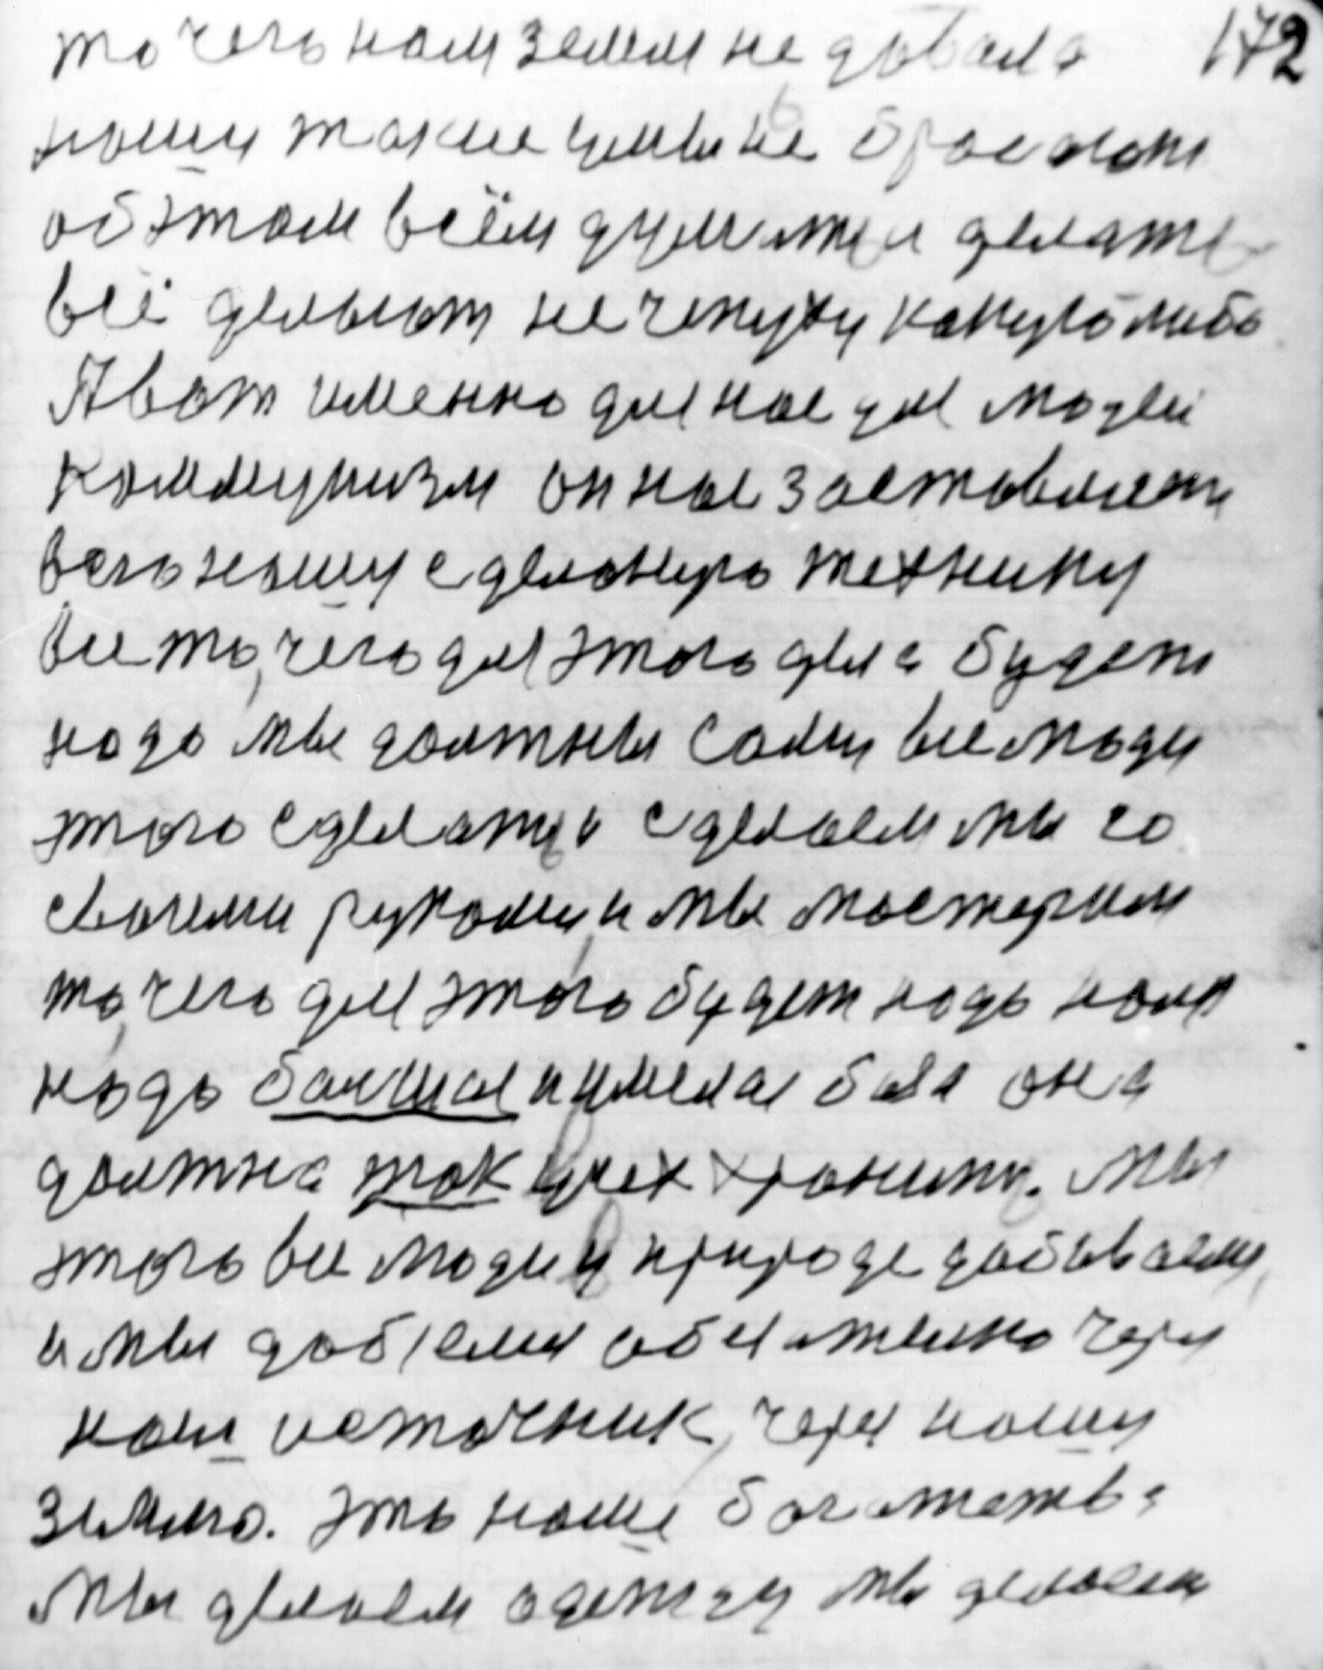 то чего нам земля не давала 172
нашы такие умы не бросают
об этом всём думатъ и делатъ
всё делают не чепуху какую либо
А вот именно для нас для людей
коммунизм он нас заставляет
всю нашу сделаную технику
все то, чего для этого дела будет
надо мы должны самы все люды
этого сделатъ и сделаем мы со
своими рукамы, и мы мастерим
то, чего для этого будет надо нам
надо болшая и умелая база она
должна так у нех хранитъ. Мы
этого все люды у природе добываем,
и мы добъемся обязателно через
наш источник, через нашу
землю. Это наше богатство
Мы делаем одежду мы делаем